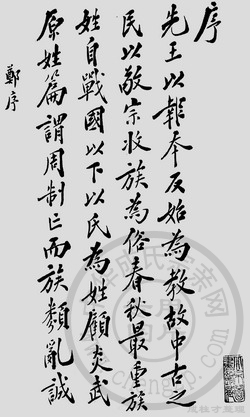 序
先王以報本反始為教故中古之
民以敬宗收族為俗春秋最重族
姓自戰國以下以氏為姓顧炎武
原姓篇謂周制亡而族類亂誠
鄭序